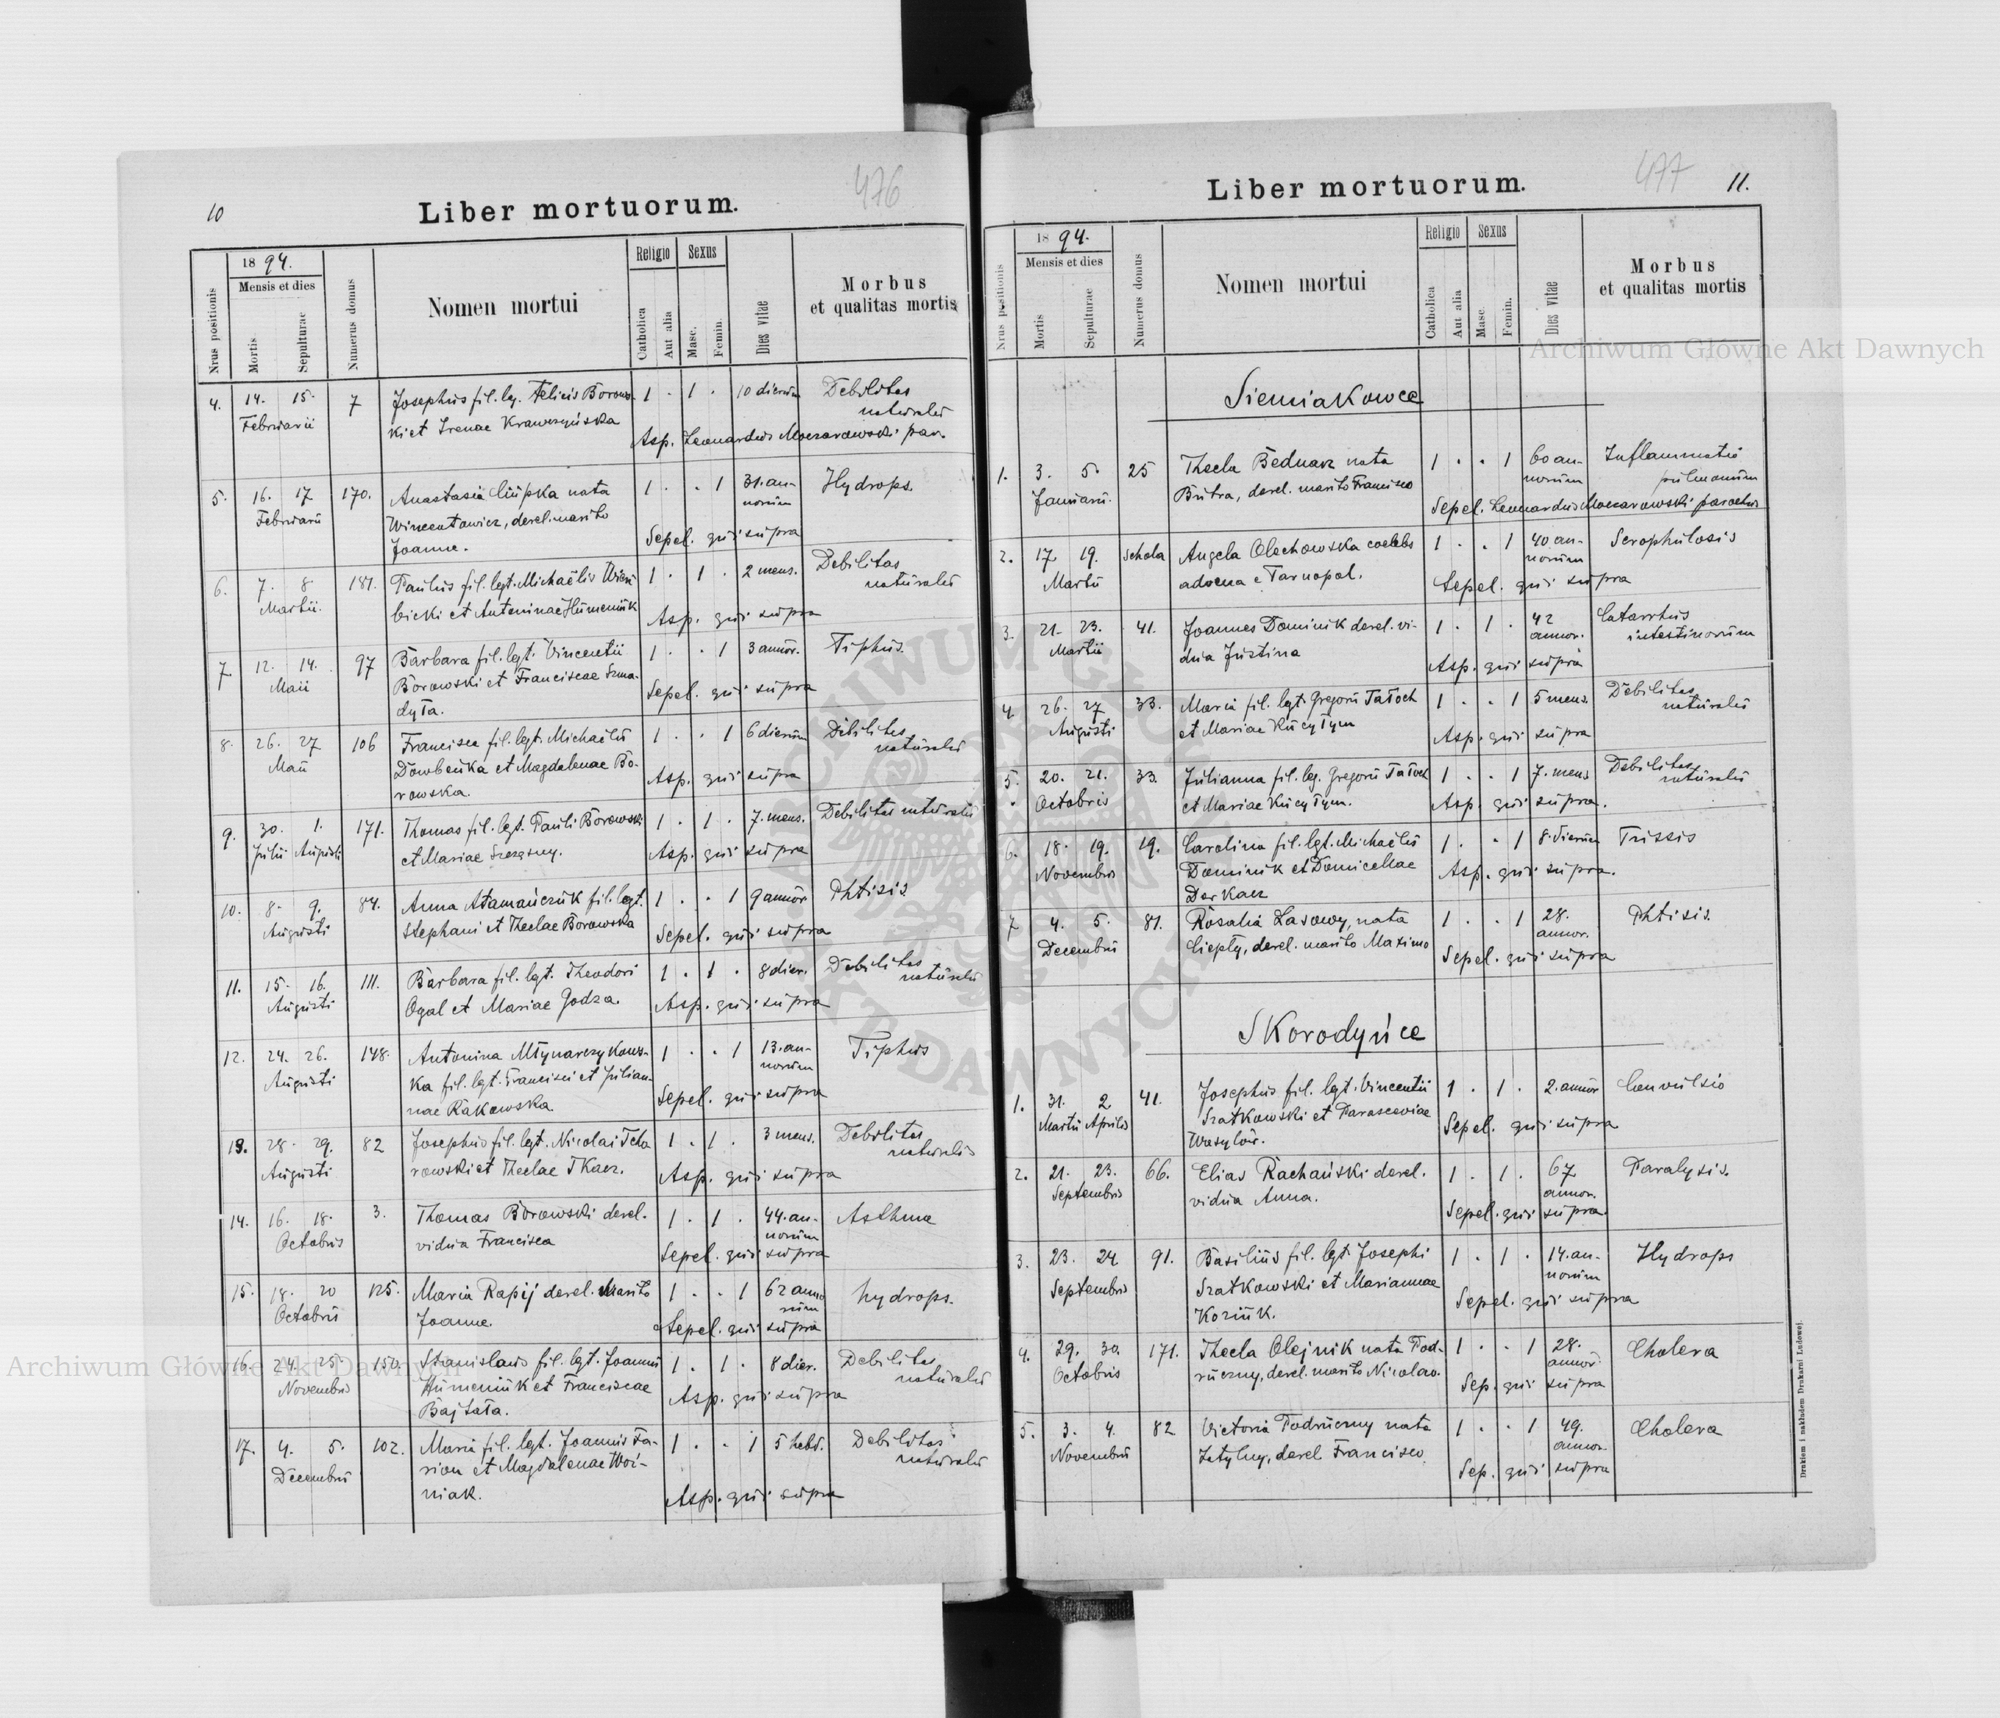 10
Liber mortuorum.
476
Nrus positionis
1894.
Mensis et dies
Mortis
Sepulturae
Numerus domus
Nomen mortui
Religio
Catholica
Aut alia
Sexus
Masc.
Femin.
Dies vitae
Morbus
et qualitas mortis
4. 14. 15. 7 Josephus fil. lg. Felicis Borows- 1 . 1 . 10 dierum Debilitas
Februarii ki et Irenae Krawczyńska naturalis
Asp. Leonardus Moczarowski par.
5. 16. 17 170. Anastasia Ciupka nata 1 . . 1 31. an- Hydrops.
Februarii Wincentowicz, derel. marito norum
Joanne. Sepel. qui supra
6. 7. 8 181. Paulus fil. lgt. Michaëlis 1 . 1 . 2 mens. Debilitas
Martii. bicki et Antoninae Humeniuk naturalis
Asp. qui supra
7 12. 14. 97 Barbara fil. lgt. Vincentii 1 . . 1 3 annor. Tiphus.
Maii Borowski et Franciscae Szma-
dyła. Sepel. qui supra
8. 26. 27 106 Francisca fil. lgt. Michaëlis 1 . . 1 6 dierum Debilitas
Maii Dowbeńka et Magdalenae Bo- naturalis
rowska. Asp. qui supra
9. 30. 1. 171. Thomas fil. lgt. Pauli Borowski 1 . 1 . 7. mens. Debilitas naturalis
Julii Augusti et Mariae Szczęsny. Asp. qui supra
10. 8. 9. 84. Anna Atamańczuk fil. legt. 1 . . 1 9 annor Phtisis
Augusti Stephani et Theclae Borowska Sepel. qui supra
11. 15. 16. 111. Barbara fil. lgt. Theodori 1 . 1 . 8 dier. Debilitas
Augusti Ogal et Mariae Godza. naturalis
Asp. qui supra
12. 24. 26. 148. Antonina Młynarczykows- 1 . . 1 13. an- Tiphus
Augusti ka fil. lgt. Francisci et Julian- norum
nae Rakowska Sepel. qui supra
13. 28. 29. 82 Josephus fil. lgt. Nicolai Tcho 1 . 1 . 3 mens. Debilitas
Augusti rowski et Theclae Tkacz. naturalis
Asp. qui supra
14. 16. 18. 3. Thomas Borowski derel. 1 . 1 . 44. an- Asthma
Octobris vidua Francisca norum
Sepel. qui supra
15. 18. 20 125. Maria Rapij derel. marito 1 . . 1 62 anno hydrops.
Octobris Joanne. rum
Sepel. qui supra
16. 24. 25. 150. Stanislaus fil. lgt. Joannis 1 . 1 . 8 dier. Debilitas
Novembris Humeniuk et Franciscae naturalis
Bajtała. Asp. qui supra
17. 4. 5. 102. Maria fil. lgt. Joannis Fa- 1 . . 1 5 hebd. Debilitas
Decembris rion et Magdalenae Woź- naturalis
niak. Asp. qui supra
Liber mortuorum.
477
11.
Nrus positionis
1894.
Mensis et dies
Mortis
Sepulturae
Numerus domus
Nomen mortui
Religio
Catholica
Aut alia
Sexus
Masc.
Femin.
Dies vitae
Morbus
et qualitas mortis
Siemiakowce
1. 3. 5. 25 Thecla Bednarz nata 1 . . 1 60 an- Inflammatio
Januarii. Butra, derel. marito Francisco norum pulmonum
Sepel. Leonardus Moczarowski parochus
2. 17. 19. schola Angela Olechowska coelebs 1 . . 1 40 an- Scrophulosis
Martii advena e Tarnopol. norum
Sepel. qui supra
3. 21. 23. 41. Joannes Dominik derel. vi- 1 . 1 . 42 Catarrhus
Martii dua Justina annor. intestinorum
Asp. qui supra
4. 26. 27 33. Maria fil. lgt. Gregorii Tałoch 1 . . 1 5 mens. Debilitas
Augusti et Mariae Kucytym naturalis
Asp. qui supra
5. 20. 21. 33. Julianna fil. lg. Gregorii Tałoch 1 . . 1 7. mens Debilitas
Octobris et Mariae Kucytym. naturalis
Asp. qui supra.
6. 18. 19. 19. Carolina fil. lgt. Michaëlis 1 . . 1 8. dierum Trissis
Novembris Dominik et Domicellae
Derkacz Asp. qui supra.
7 4. 5. 81. Rosalia Lasowy, nata 1 . . 1 28. Phtisis.
Decembris Ciepły, derel. marito Maximo annor.
Sepel. qui supra
Skorodyńce
1. 31. 2 41. Josephus fil. lgt. Vincentii 1 . 1 . 2. annor Convulsio
Martii Aprilis Szatkowski et Parasceviae
Wasylów. Sepel. qui supra
2. 21. 23. 66. Elias Rachański derel. 1 . 1 . 67 Paralysis.
Septembris vidua Anna. annor.
Sepel. qui supra.
3. 23. 24 91. Basilius fil. lgt. Josephi 1 . 1 . 14. an- Hydrops
Septembris Szatkowski et Mariannae norum
Koziuk. Sepel. qui supra
4. 29. 30. 171. Thecla Olejnik nata Pod- 1 . . 1 28. Cholera
Octobris ruczny, derel. marito Nicolao. annor.
Sep. qui supra
5. 3. 4. 82 Victoria Podruczny nata 1 . . 1 49. Cholera
Novembris Zatylny, derel Francisco. annor.
Sep. qui supra
Drukiem i nakładem Drukarni Ludowej.
Archiwum Główne Akt Dawnych
Archiwum Główne Akt Dawnych
ARCHIWUM GŁÓWNE AKT DAWNYCH